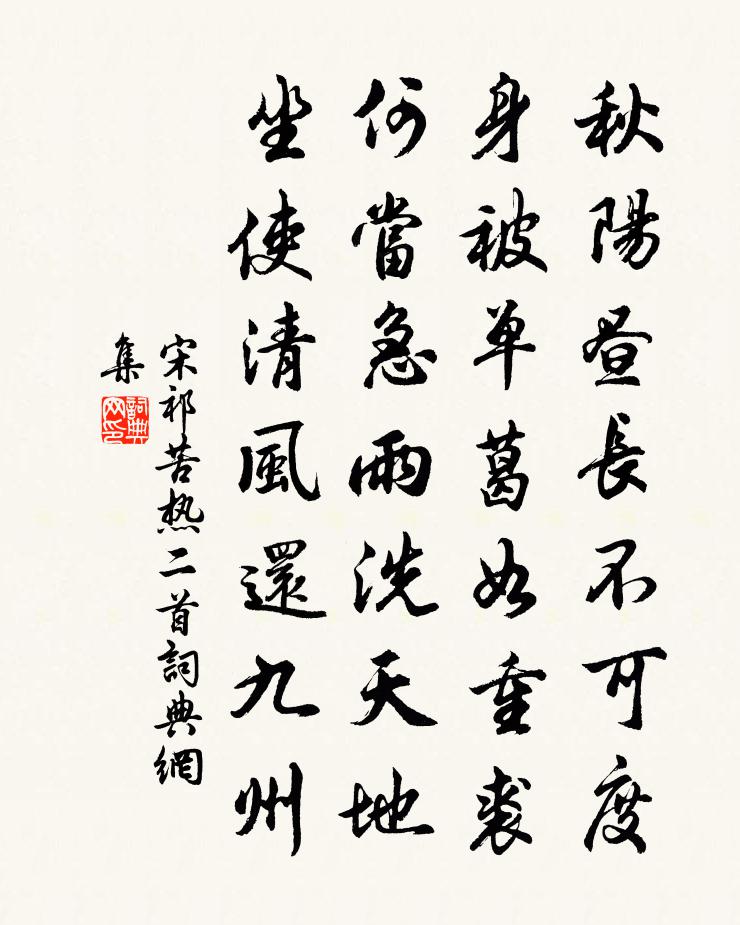 秋陽昼長不可度
身被单葛如重裘
何當急雨洗天地
坐使清風還九州
宋祁苦热二首詞典網
集
詞典
网印